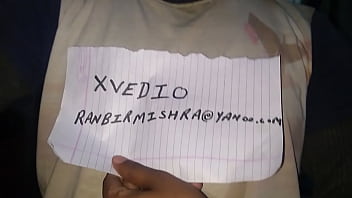 XVEDIO
RANBIRMISHRA@YAHOO.COM